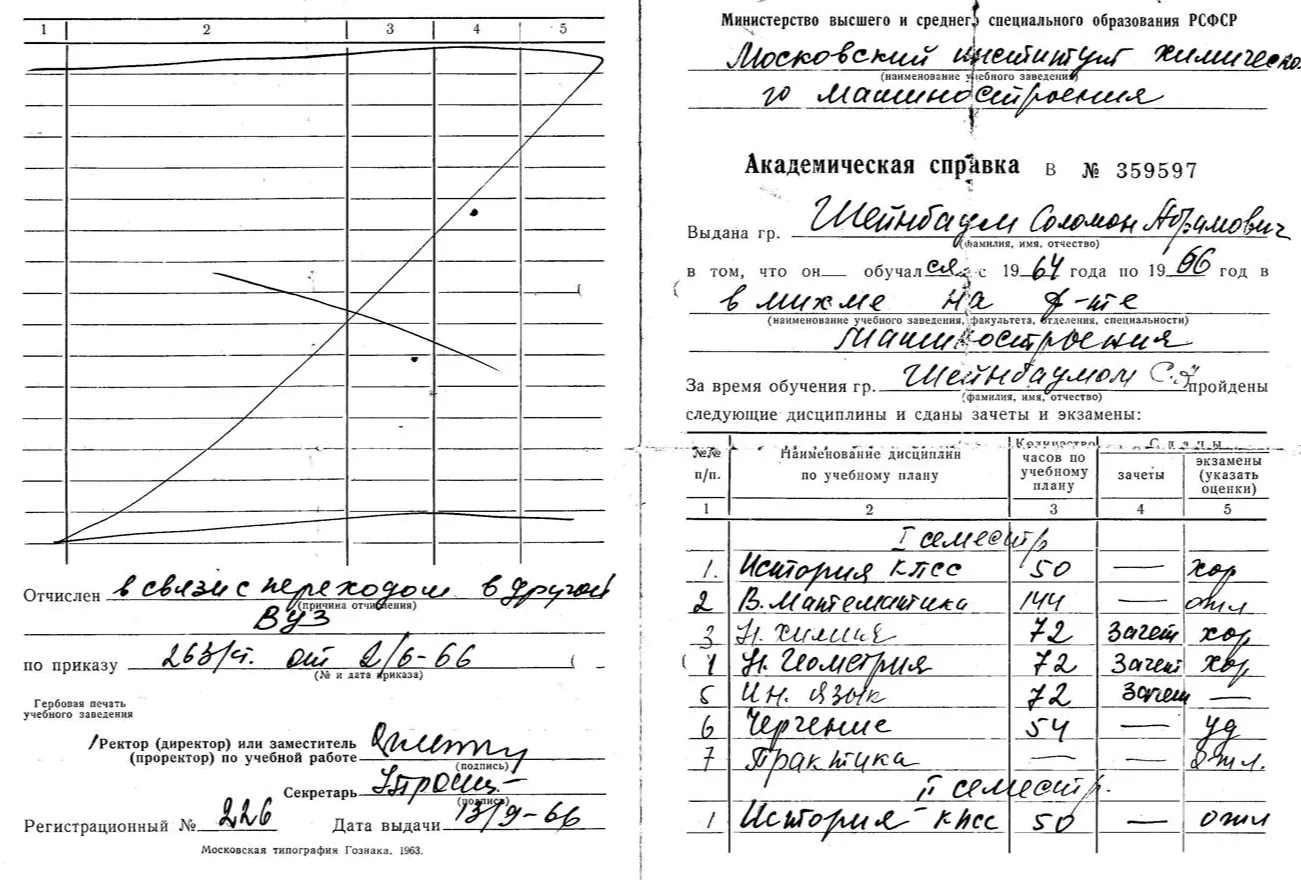 1 2 3 4 5
Отчислен в связи с переходом в другой
(причина отчисления)
ВУЗ
по приказу 263/ст. от 2/6-66
(№ и дата приказа)
Гербовая печать
учебного заведения
Ректор (директор) или заместитель
(проректор) по учебной работе
(подпись)
Секретарь
(подпись)
Регистрационный № 226 Дата выдачи 13/9-66
Московская типография Гознака. 1963.
Министерство высшего и среднего специального образования РСФСР
Московский институт химическо
(наименование учебного заведения)
го машиностроения
Академическая справка В № 359597
Выдана гр. Шейнбаум Соломон Абрамович
(фамилия, имя, отчество)
в том, что он обучался с 1964 года по 1966 год в
в михме на ф-те
(наименование учебного заведения, факультета, отделения, специальности)
Машиностроения
За время обучения гр. Шейнбаумом С.А пройдены
(фамилия, имя, отчество)
следующие дисциплины и сданы зачеты и экзамены:
№№ п/п. Наименование дисциплин по учебному плану Количество часов по учебному плану Сдачи зачеты экзамены (указать оценки)
1 2 3 4 5
I семестр
1. История КПСС 50 — хор
2 В. Математика 144 — отл
3 Н. химия 72 Зачет хор
4 Н. Геометрия 72 Зачет хор
5 Ин. язык 72 Зачет —
6 Черчение 54 — уд
7 Практика — — отл.
II семестр.
1 История КПСС 50 — отл